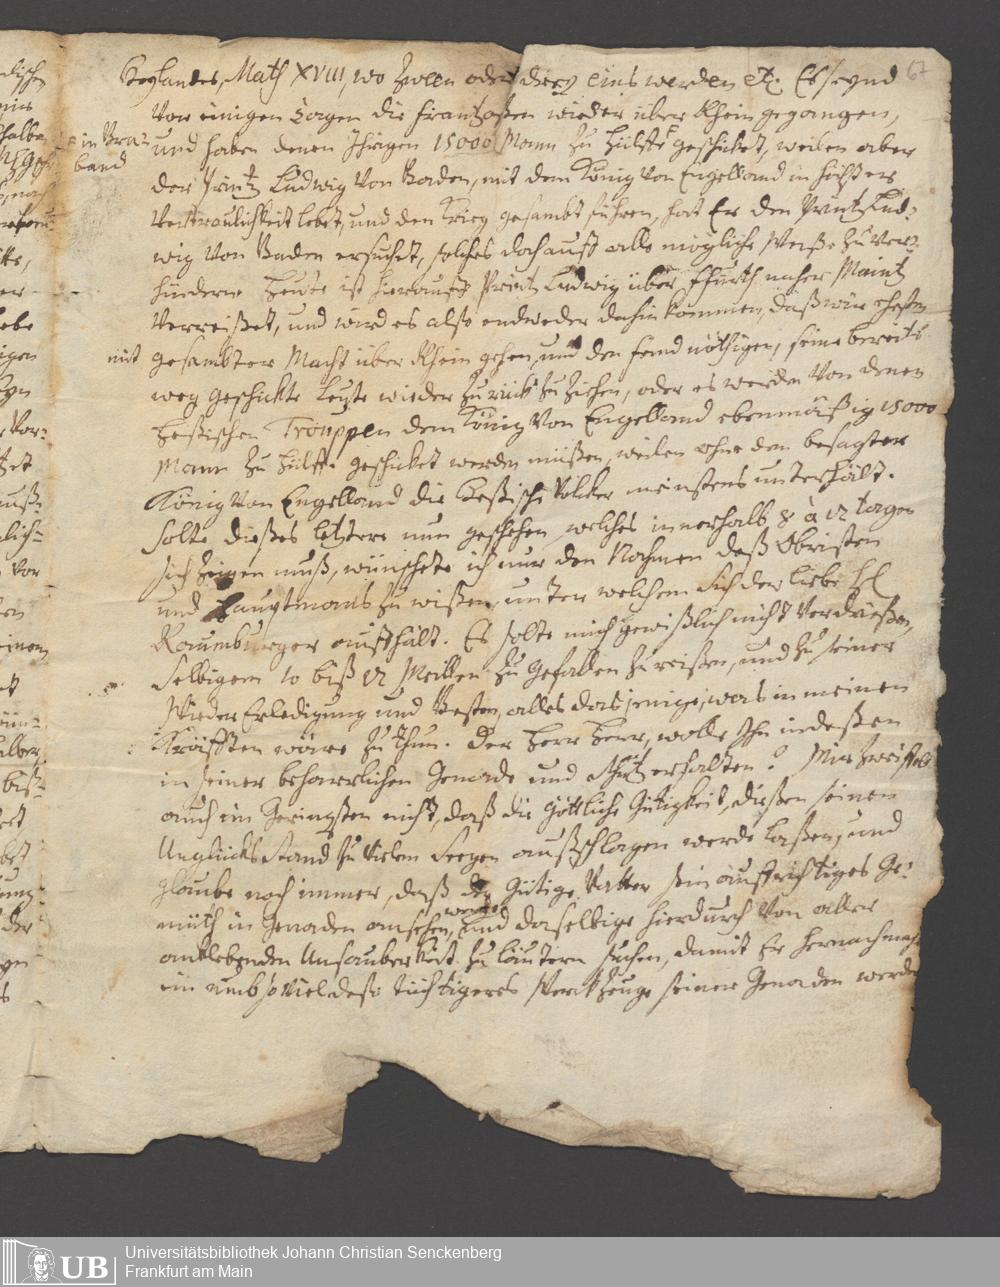 67
Heylandes, Math XVIII, wo Zween oder drey eins werden etc. Es seynd
Vor einigen Tagen die Frantzosen wieder über Rhein gegangen,
in Bra-
band
und haben denen Ihrigen 15000 Mann zu Hülffe geschicket, weilen aber
der Printz Ludwig Von Baden, mit dem König von Engelland in höchster
Vertraulichkeit lebet, und den Krieg gesambt führen, hat Er den Printz Lud-
wig Von Baden ersuchet, solches doch auff alle mögliche Weiße zu Ver-
hindern. Heute ist hierauff Printz Ludwig über Fürth naher Maintz
Verreißet, und wird es also endweder dahin kommen, daß wir ehestens
mit
gesambter Macht über Rhein gehen, und den feind nöthigen, seine bereits
weg geschickte Leute wieder zurück zu Ziehen, oder es werden Von denen
Heßischen Trouppen dem König Von Engelland ebenmäßig 15000
Mann zu Hülffe geschicket werden müßen, weilen ohne dem besagter
König Von Engelland die Heßische Völcker meinstens unterhält.
Solte dießes letztere nun geschehen, welches innerhalb 8 à 12 tagen
sich Zeigen muß, wünschete ich nur den Nahmen deß Obristen
und Hauptmans zu wißen, unter welchem sich der liebe H
Raumburger auffhält. Es solte mich gewißlich nicht Verdrießen,
Selbigem 10 biß 12 Meillen zu gefallen zu reißen, und zu seiner
Wieder Erledigung und Besten, alles das jenige, was in meinen
Kräfften wäre zu thun. Der Herr Herr, wolle Ihn indeßen
in seiner beharrlichen Genade und Schutz erhalten! Mir Zweiffelt
auch im Geringsten nicht, daß die göttliche Gütigkeit, dießen seinen
Unglücks stand zu Vielem Seegen außschlagen werde laßen, und
glaube noch immer, daß der Gütige Vatter sein auffrichtiges Ge-
müth in Genaden ansehen werde, und dasselbige hierdurch Von aller
anklebenden Unsauberkeit zu läutern suchen, damit Er hernachmahls
ein umb so Viel deso tüchtigeres Werckzeuge seiner Genaden werde
UB
Universitätsbibliothek Johann Christian Senckenberg
Frankfurt am Main